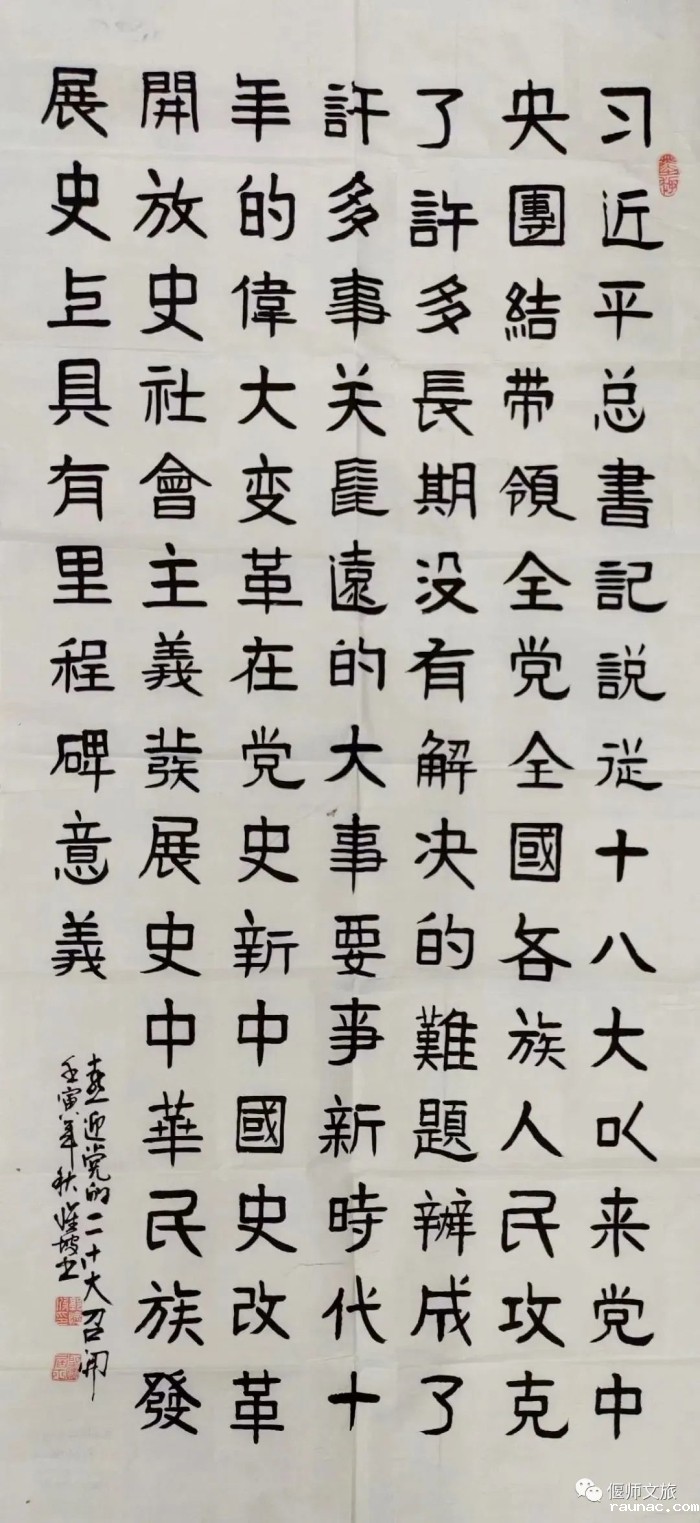 习近平总書記説従十八大以来党中
央團結带領全党全國各族人民攻克
了許多長期没有解决的難題辦成了
許多事关長遠的大事要事新時代十
年的偉大变革在党史新中國史改革
開放史社會主義發展史中華民族發
展史上具有里程碑意義
喜迎党的二十大召开
壬寅年秋 坡书
偃师文旅
raunac.com